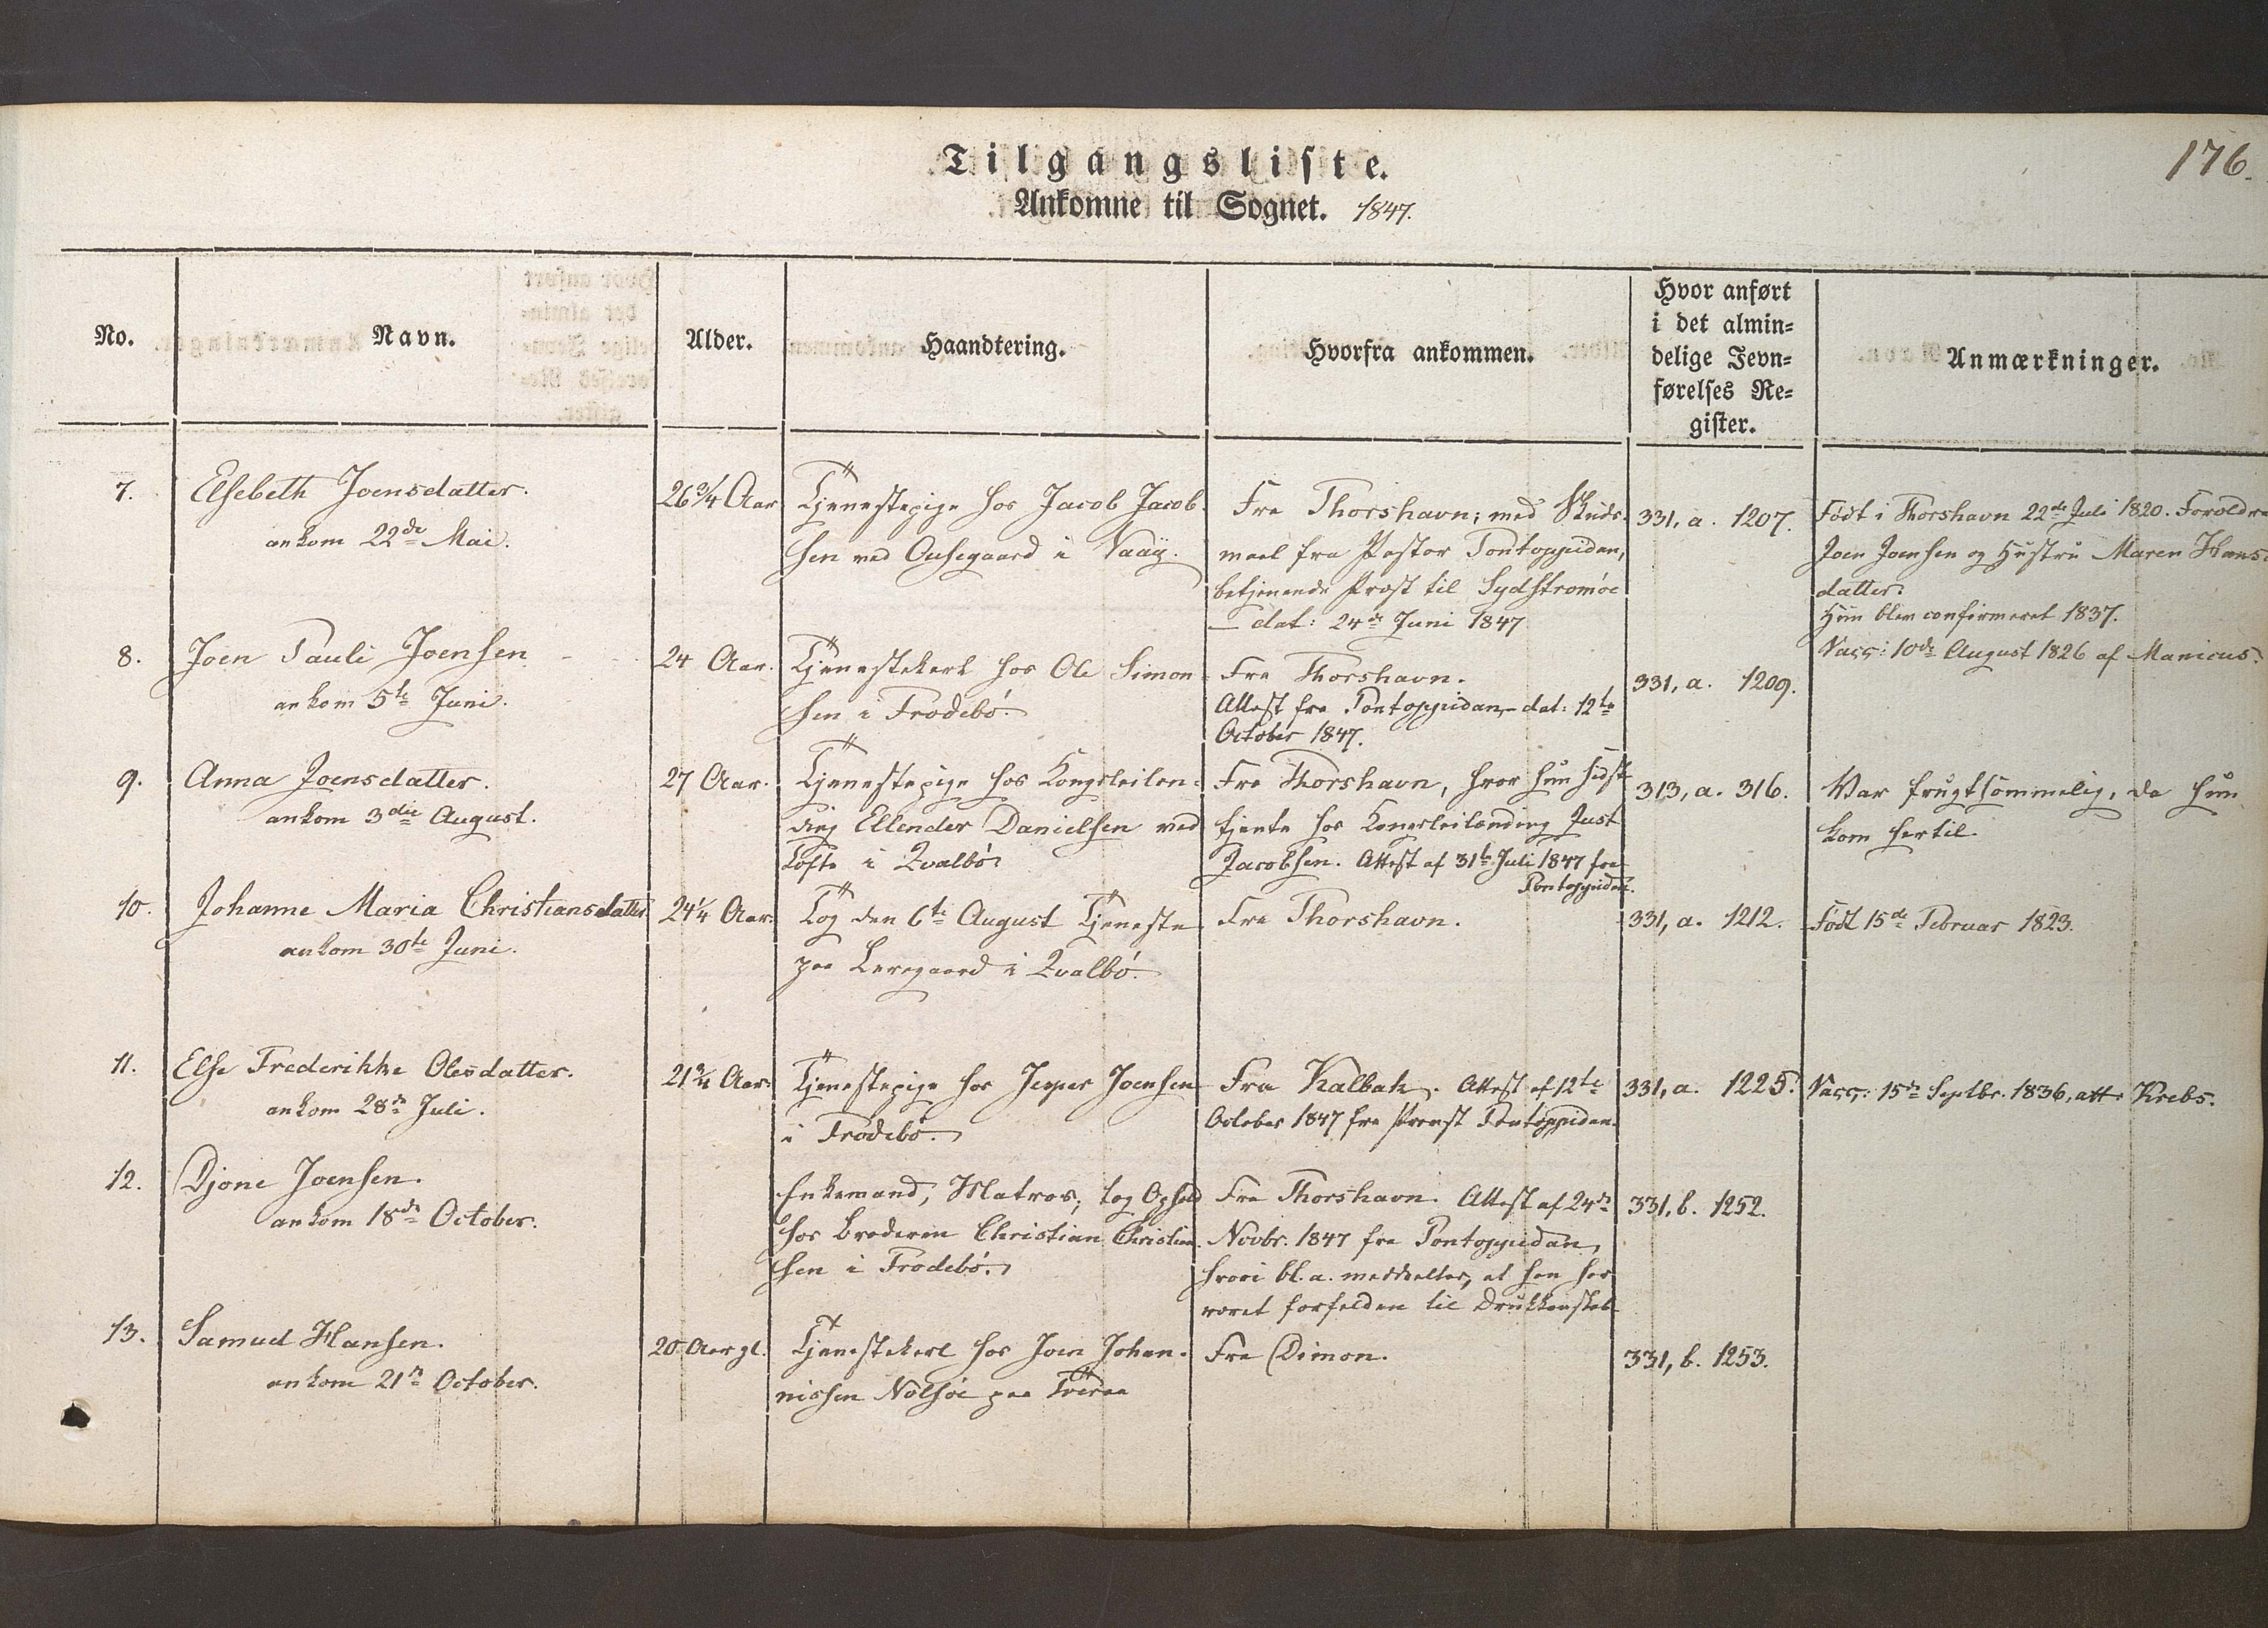 176.
Tilgangsliste.
Ankomne til Sognet. 1847.
No.
Navn.
Alder.
Haandtering.
Hvorfra ankommen.
Hvor anført
i det almin=
delige Jevn=
førelses Re=
gister.
Anmærkninger.
7.
Elsebeth Joensdatter.
ankom 22de Mai.
26 3/4 Aar
Tjenestepige hos Jacob Jacob-
sen ved i Vaag.
Fra Thorshavn; med Skuds-
maal fra Pastor Pontoppidan,
betjenende Præst til Sydstromöe
dat: 24de Juni 1847
331, a. 1207.
Födt i Thorshavn 22de Juli 1820. Forældre
Joen Joensen og Hustru Maren Hans-
datter.
Hun blev confirmeret 1837.
Vacc: 10de August 1826 af Manicus.
8.
Joen Pauli Joensen
ankom 5te Juni.
24 Aar.
Tjenestekarl hos Ole Simon-
sen i Frodebö.
Fra Thorshavn.
Attest fra Pontoppidan, dat: 12te
October 1847.
331, a. 1209.
9.
Anna Joensdatter.
ankom 3die August.
27 Aar.
Tjenestepige hos Kongsleilen-
ding Ellender Danielsen ved
Löfte i Qvalbö.
Fra Thorshavn, hvor hun sidst
tjente hos Kongsleilænding Just
Jacobsen. Attest af 31te Juli 1847 fra
Pontoppidan.
313, a. 316.
Var frugtsommelig, da hun
kom hertil.
10.
Johanne Maria Christiansdatter
ankom 30te Juni.
24 1/4 Aar.
Tog den 6te August Tjeneste
paa Leregaard i Qvalbö.
Fra Thorshavn.
331, a. 1212.
Födt 15de Februar 1823.
11.
Else Frederikke Olesdatter.
ankom 28de Juli.
21 3/4 Aar.
Tjenestepige hos Jesper Joensen
i Frodebö.
Fra Kalbak. Attest af 12te
October 1847 fra Provst Pontoppidan.
331, a. 1225.
Vacc: 15de Septbr. 1836, att. Krebs.
12.
Djone Joensen.
ankom 18de October.
Enkemand, Matros; tog Ophold
hos Broderen Christian Christian-
sen i Frodebö.
Fra Thorshavn. Attest af 24de
Novbr. 1847 fra Pontoppidan,
hvori bl. a. meddeltes, at han har
været forfalden til Drukkenskab
331, b. 1252.
13.
Samuel Hansen.
ankom 21de October.
20 Aar gl.
Tjenestekarl hos Joen Johan-
nissen Nolsöe paa Tveraa
Fra Dimon.
331, b. 1253.